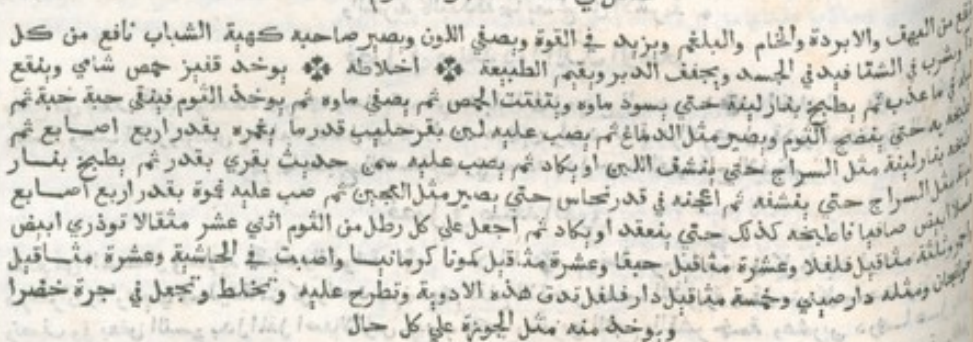 من البهف والابردة والخام والبلغم ويزيد في القوة ويصفي اللون ويصير صاحبه كهية الشباب نافع من كل
وشرب في الشتا فيدفي الجسد ويجفف الدبر ويقيم الطبيعة اخلاطه يوخذ قفيز حمص شامي وينقع
في ما عذب ثم يطبخ بنار لينة حتي يسود ماوه ويتفتت الحمص ثم يصفي ماوه ثم يوخذ الثوم فينقي حبة حبة ثم
به حتي ينضج الثوم ويصير مثل الدماغ ثم يصب عليه لبن بقر حليب قدر ما يغمره بقدر اربع اصابع ثم
بنار لينة مثل السراج حتي ينشف اللبن او يكاد ثم يصب عليه سمن حديث بقري بقدر ثم يطبخ بنار
مثل السراج حتي ينشفه ثم اعجنه في قدر نحاس حتي يصير مثل العجين ثم صب عليه بقدر اربع اصابع
ابيض صافيا فاطبخه كذلك حتي ينعقد او يكاد ثم اجعل علي كل رطل من الثوم اثني عشر مثقالا توذري ابيض
وثلثة مثاقيل فلفلا وعشرة مثاقيل حبقا وعشرة مثاقيل كمونا كرمانيا واصبت في الحاشية وعشرة مثاقيل
ومثله دارصيني وخمسة مثاقيل دار فلفل تدق هذه الادوية وتطرح عليه وتخلط وتجعل في جرة خضرا
ويوخذ منه مثل الجوزة علي كل حال